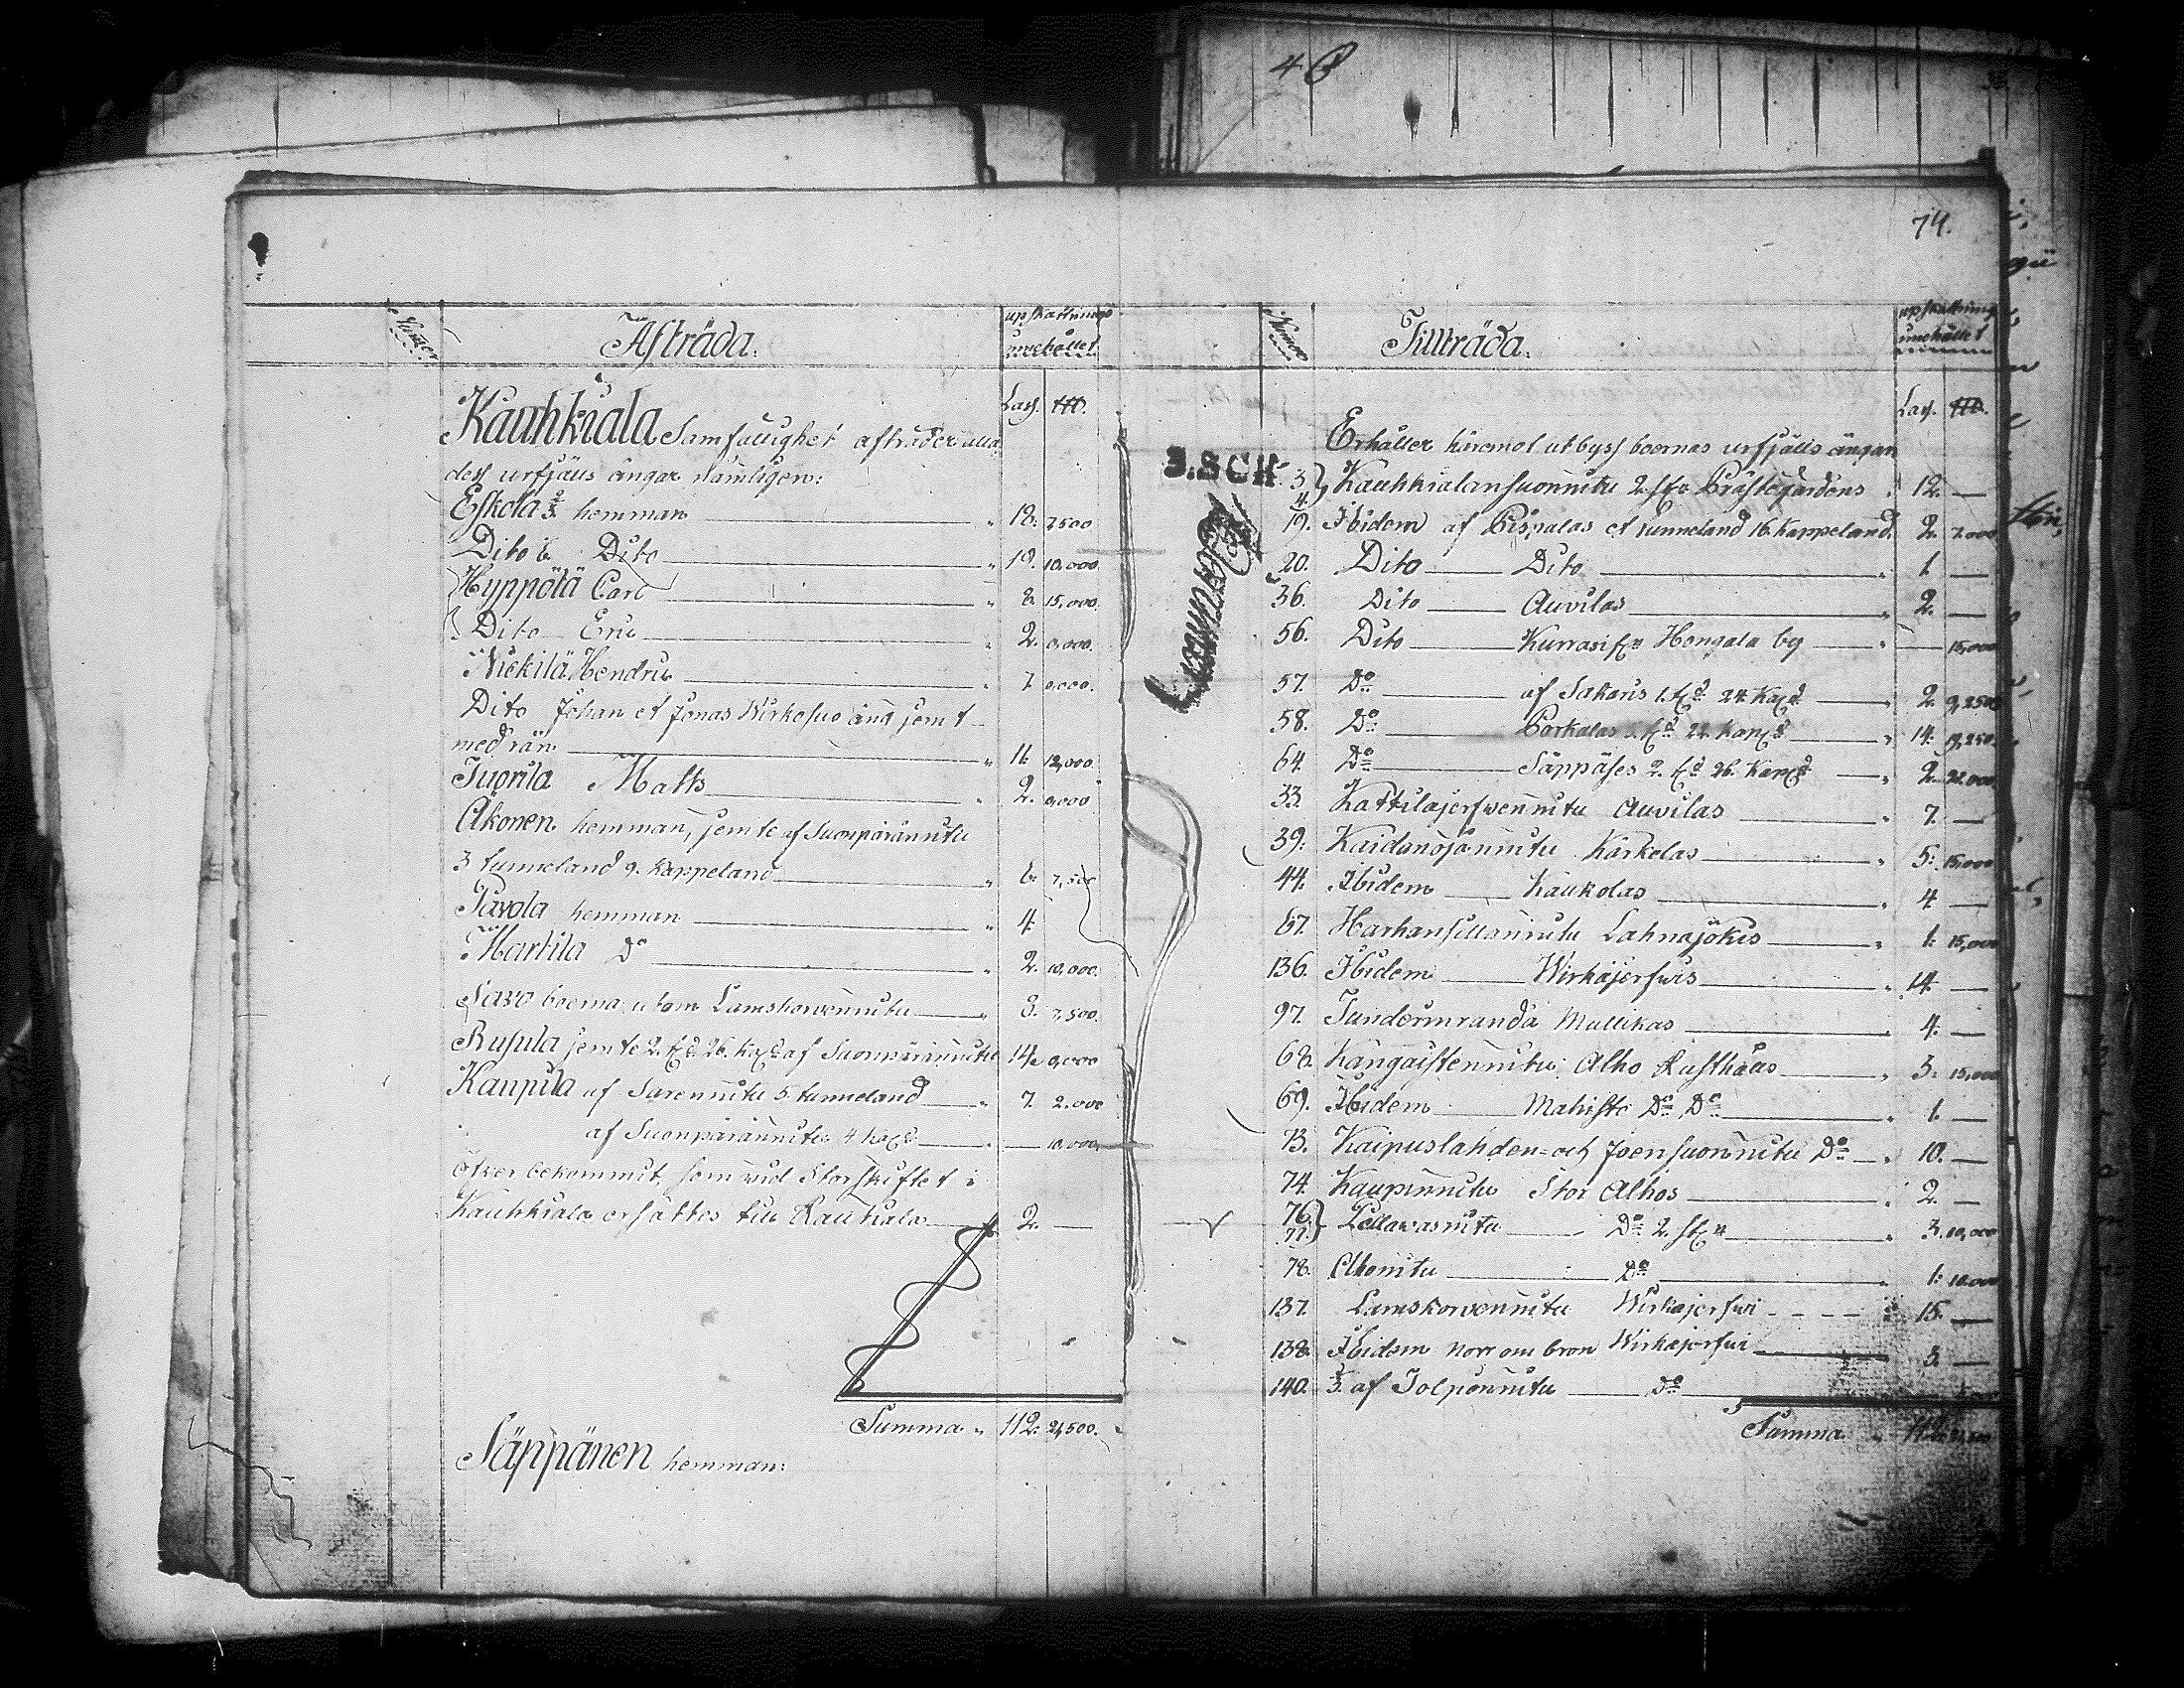 48
74.
Numer
Afträda.
upskattnings
innehållet
Lass. ttt.
Kauhkiala Samfällighet afträder alla
dess urfjälls ängar nämligen:
Eskola 2/3 hemman 18. 7500
Dito Dito 19. 10,000.
Hyppölä Carl 8. 15,000.
Dito Eric 2.
Nickilä Hendric 7.
Dito Johan et Jonas Wirkosuo äng jemt
med rån 11. 12,000.
Juorila Matts 2.
Åkonen hemman, jemte af Suonpärännitu
3 tunneland 9. kappeland 6. 7,500
Pavola hemman 4.
Hartila Do 2. 10,000.
Savo boerna utom Lamskorvennitu 3. 7,500.
Rusula jemte 2. tld 26. Kapld af Suonpärännittu 14.
Kaupila af Sarennitu 5. tunneland 7. 2.000
af Suonpärännitu 4 kapld — 10,000.
öfver bekommit, som vid Storskiftet i
Kauhkiala ersättes till Rauhala 2. —
Summa 112. 21,500.
Säppänen hemman:
Numer
Tillträda.
upskattnings
innehållet
Lass. ttt.
Erhåller häremot utbyss boernas urfjälls ängar
3.SCH
3. 4. } Kauhkialansuonnitu 2. st. Prästegårdens 12. —
19. Ibidem af Pispalas et tunneland 16. kappeland. 2. 7.000
20. Dito — Dito — 1. —
36. Dito — Auvilas 2. —
56. Dito — Hongala by — 15,000
57. Do — af Sakaris 1. tld 24. Kapld 2. 9,250
58. Do — Porkalas 22. Kapld 14. 19,250.
64. Do — Säppäses 2. tld 26. Kapld 2. 22.000
33. Kattilajerfwennitu Auvilas 7. —
39. Kaidanojannitu Kärkelas 5. 15,000
44. Ibidem Kaukolas 4 —
67. Harhansillannitu Lahnajökis 1. 15,000
136. Ibidem Wirkäjerfwis 14. —
97. Tundermranda Mullikas 4. —
68. Kangaistennitu Alho Rusthålls 3. 15,000
69. Ibidem Mahisto Do Do 1. —
73. Kaipuslahden- och Joensuonnitu Do 10. —
74. Kaupinnitu Stor Alhos 2. —
76. 77. } Lellavasnitu Do 2. st. 3. 10,000
78. Alhonitu Do 1. 10.000
137. Lamskorvennitu Wirkäjerfwi 15. —
138. Ibidem norr om bron Wirkajerfwi 3. —
140. af Jolponnitu Do
Summa